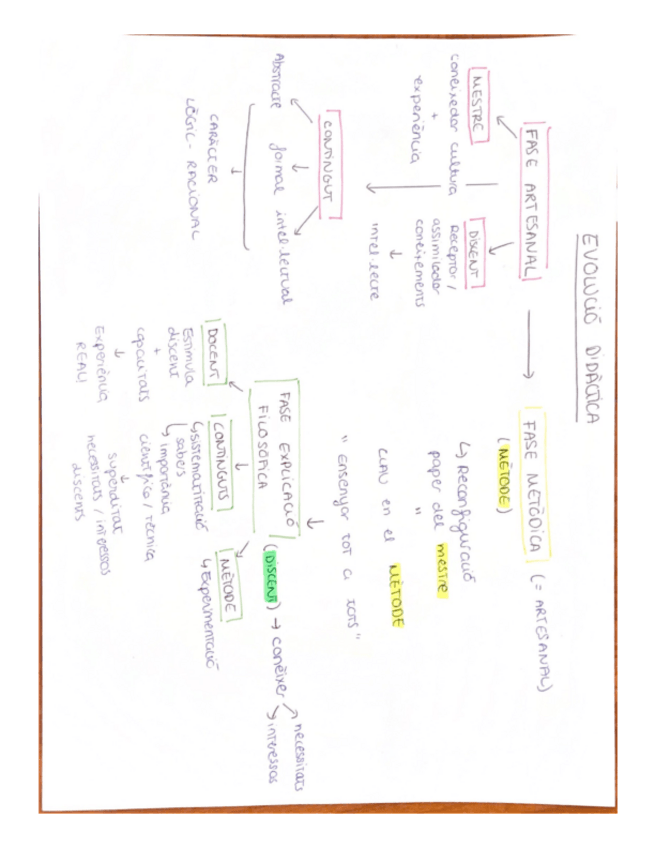 EVOLUCIÓ DIDÀCTICA
FASE ARTESANAL
MESTRE
coneixedor cultura
+
experiència
DISCENT
Receptor /
assimilador
coneixements
intel·lecte
CONTINGUT
Abstracte
formal
intel·lectual
CARÀCTER
LÒGIC - RACIONAL
FASE METÒDICA (= ARTESANAL)
(MÈTODE)
Reconfiguració
paper del mestre
"
CLAU en el MÈTODE
" Ensenyar tot a tots "
FASE EXPLICACIÓ
FILOSÒFICA
(DISCENT) → conèixer
necessitats
interessos
DOCENT
Estimula
discent
+
capacitats
Experiència
REAL
CONTINGUTS
sistematització
sabers
importància
científico / tècnica
supeditat
necessitats / interessos
discents
MÈTODE
Experimentació